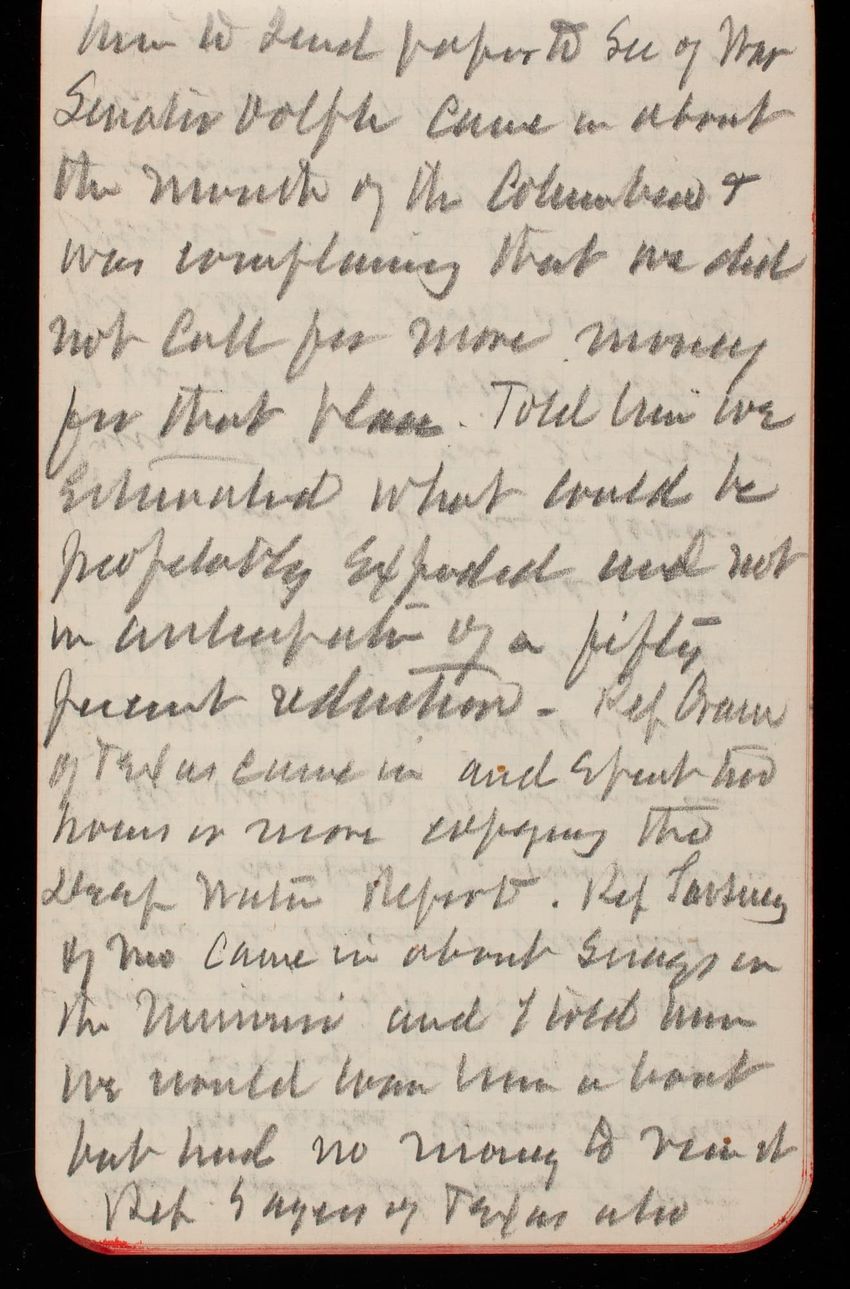 him to send papers to Sec of War
Senator Dolph came in about
the mouth of the Columbia &
was complaining that we did
not call for more money
for that place. Told him we
Estimated what could be
profitably Expended and not
in anticipation of a fifty
percent reduction - Rep Crain
of Texas came in and spent two
hours or more copying the
Deep Water Report. Rep Tarsney
of Mo came in about Snags in
the Missouri and I told him
we would loan him a boat
but had no money to run it
Rep Sayers of Texas also